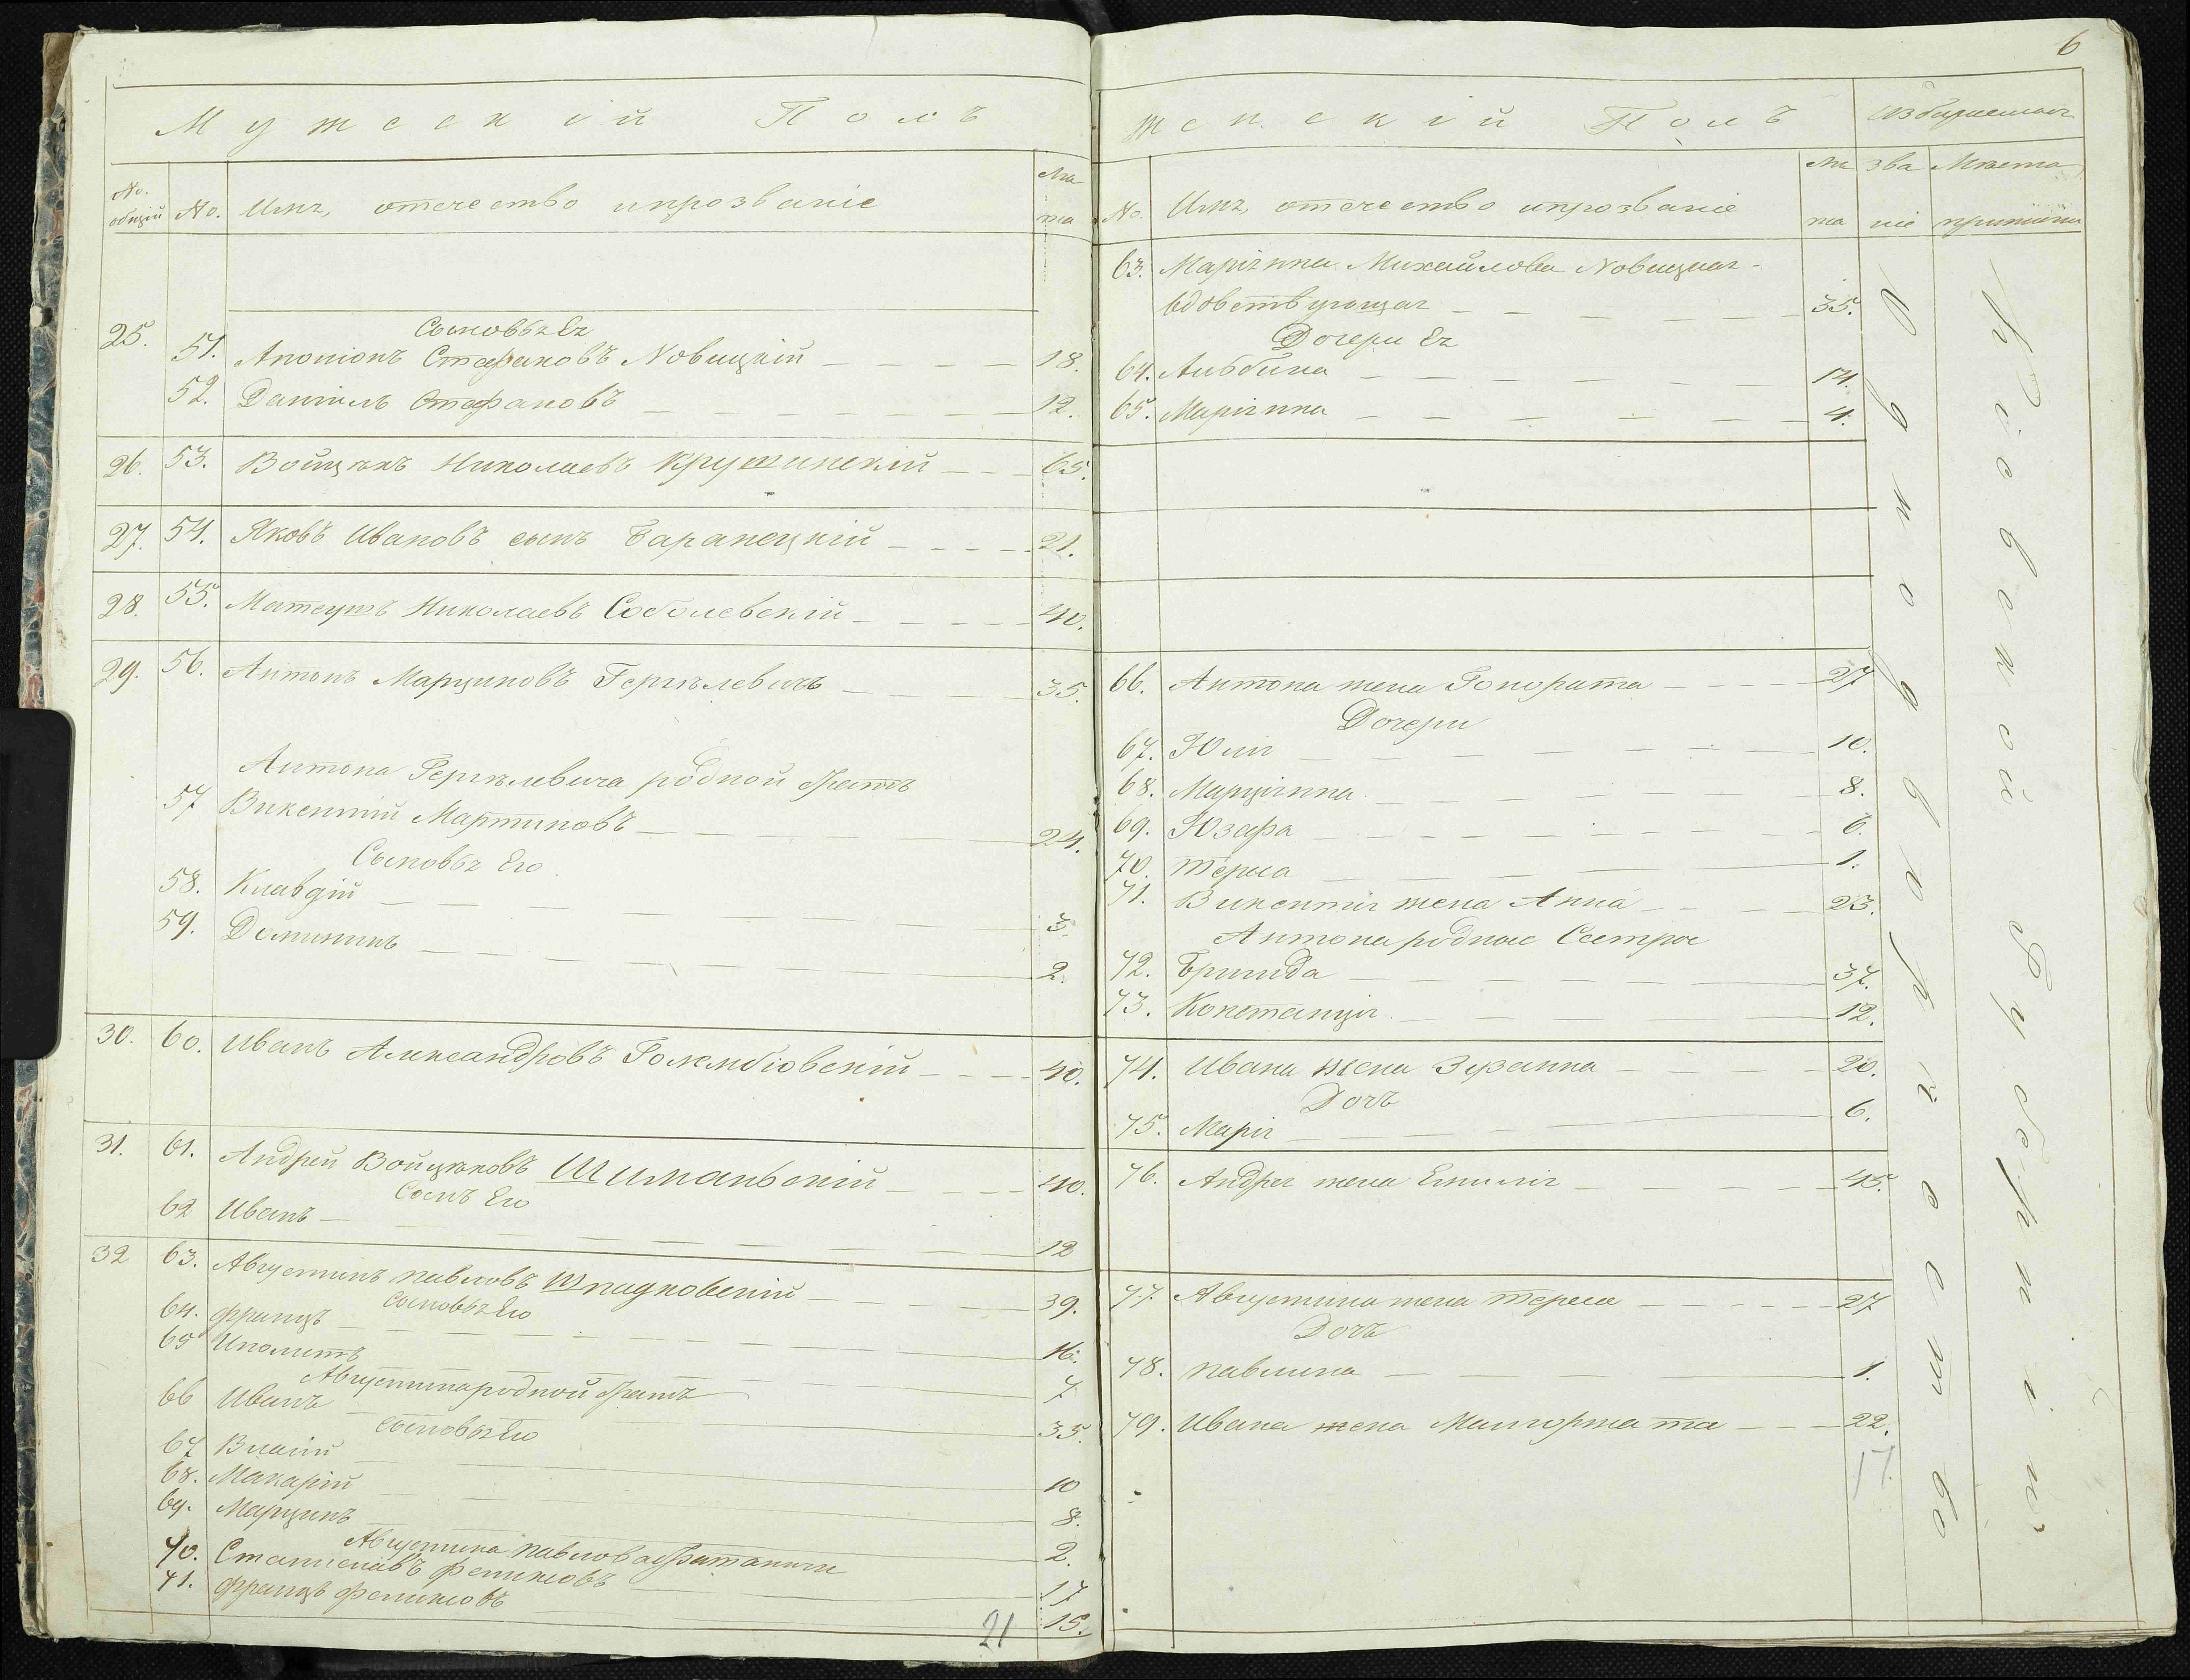 6
Мужескій Полъ
No. общій No. Имя, отечество и прозваніе Лѣта
Сыновья Ея
25. 51. Апонiонъ Стефановъ Новицкій 18.
52. Даніилъ Стефановъ 12.
26. 53. Войцѣхъ Николаевъ Крушинскій 65.
27. 54. Яковъ Ивановъ сынъ Баранецкій 21.
28. 55. Матеушъ Николаевъ Соболевскій 40.
29. 56. Антонъ Марциновъ Гергѣлевичъ 35.
Антона Гергѣлевича родной братъ
57 Викентій Мартиновъ 24.
Сыновья Его
58. Клавдій 3.
59. Доминикъ 2.
30. 60. Иванъ Александровъ Голембіовскій 40.
31. 61. Андрей Войцѣховъ Шиманьскій 40.
Сынъ Его
62 Иванъ 12
32 63. Августинъ Павловъ Шпадковскій 39.
Сыновья Его
64. Францъ 16.
65 Иполитъ 7
Августина родной братъ
66 Иванъ 35.
Сыновья Его
67 Власій 10
68. Макарій 8.
69. Марцинъ 2.
Августина Павлова братаничи
70. Станиславъ Феликсовъ 17
71. Францъ Феликсовъ 15.
21
Женскій Полъ Избираемыя
No. Имя, отечество и прозваніе Лѣта Званіе Мѣста приписки
63. Маріянна Михайлова Новицкая
вдовствующая 35.
Дочери Ея
64. Альбина 14.
65. Маріянна 4.
66. Антона жена Гонората 27
Дочери
67. Юлія 10.
68. Марціянна 8.
69. Юзефа 6.
70. Тереса 1.
71. Викентія жена Анна 23.
Антона родные Сестры
72. Бригида 37.
73. Констанція 12.
74. Ивана жена Зузанна 20.
Дочь
75. Марія 6.
76. Андрея жена Емилія 45.
77. Августина жена Тереса 27
Дочь
78. Павлина 1.
79. Ивана жена Малгоржата 22.
17.
Однодворчество
Кіевской Губерніи